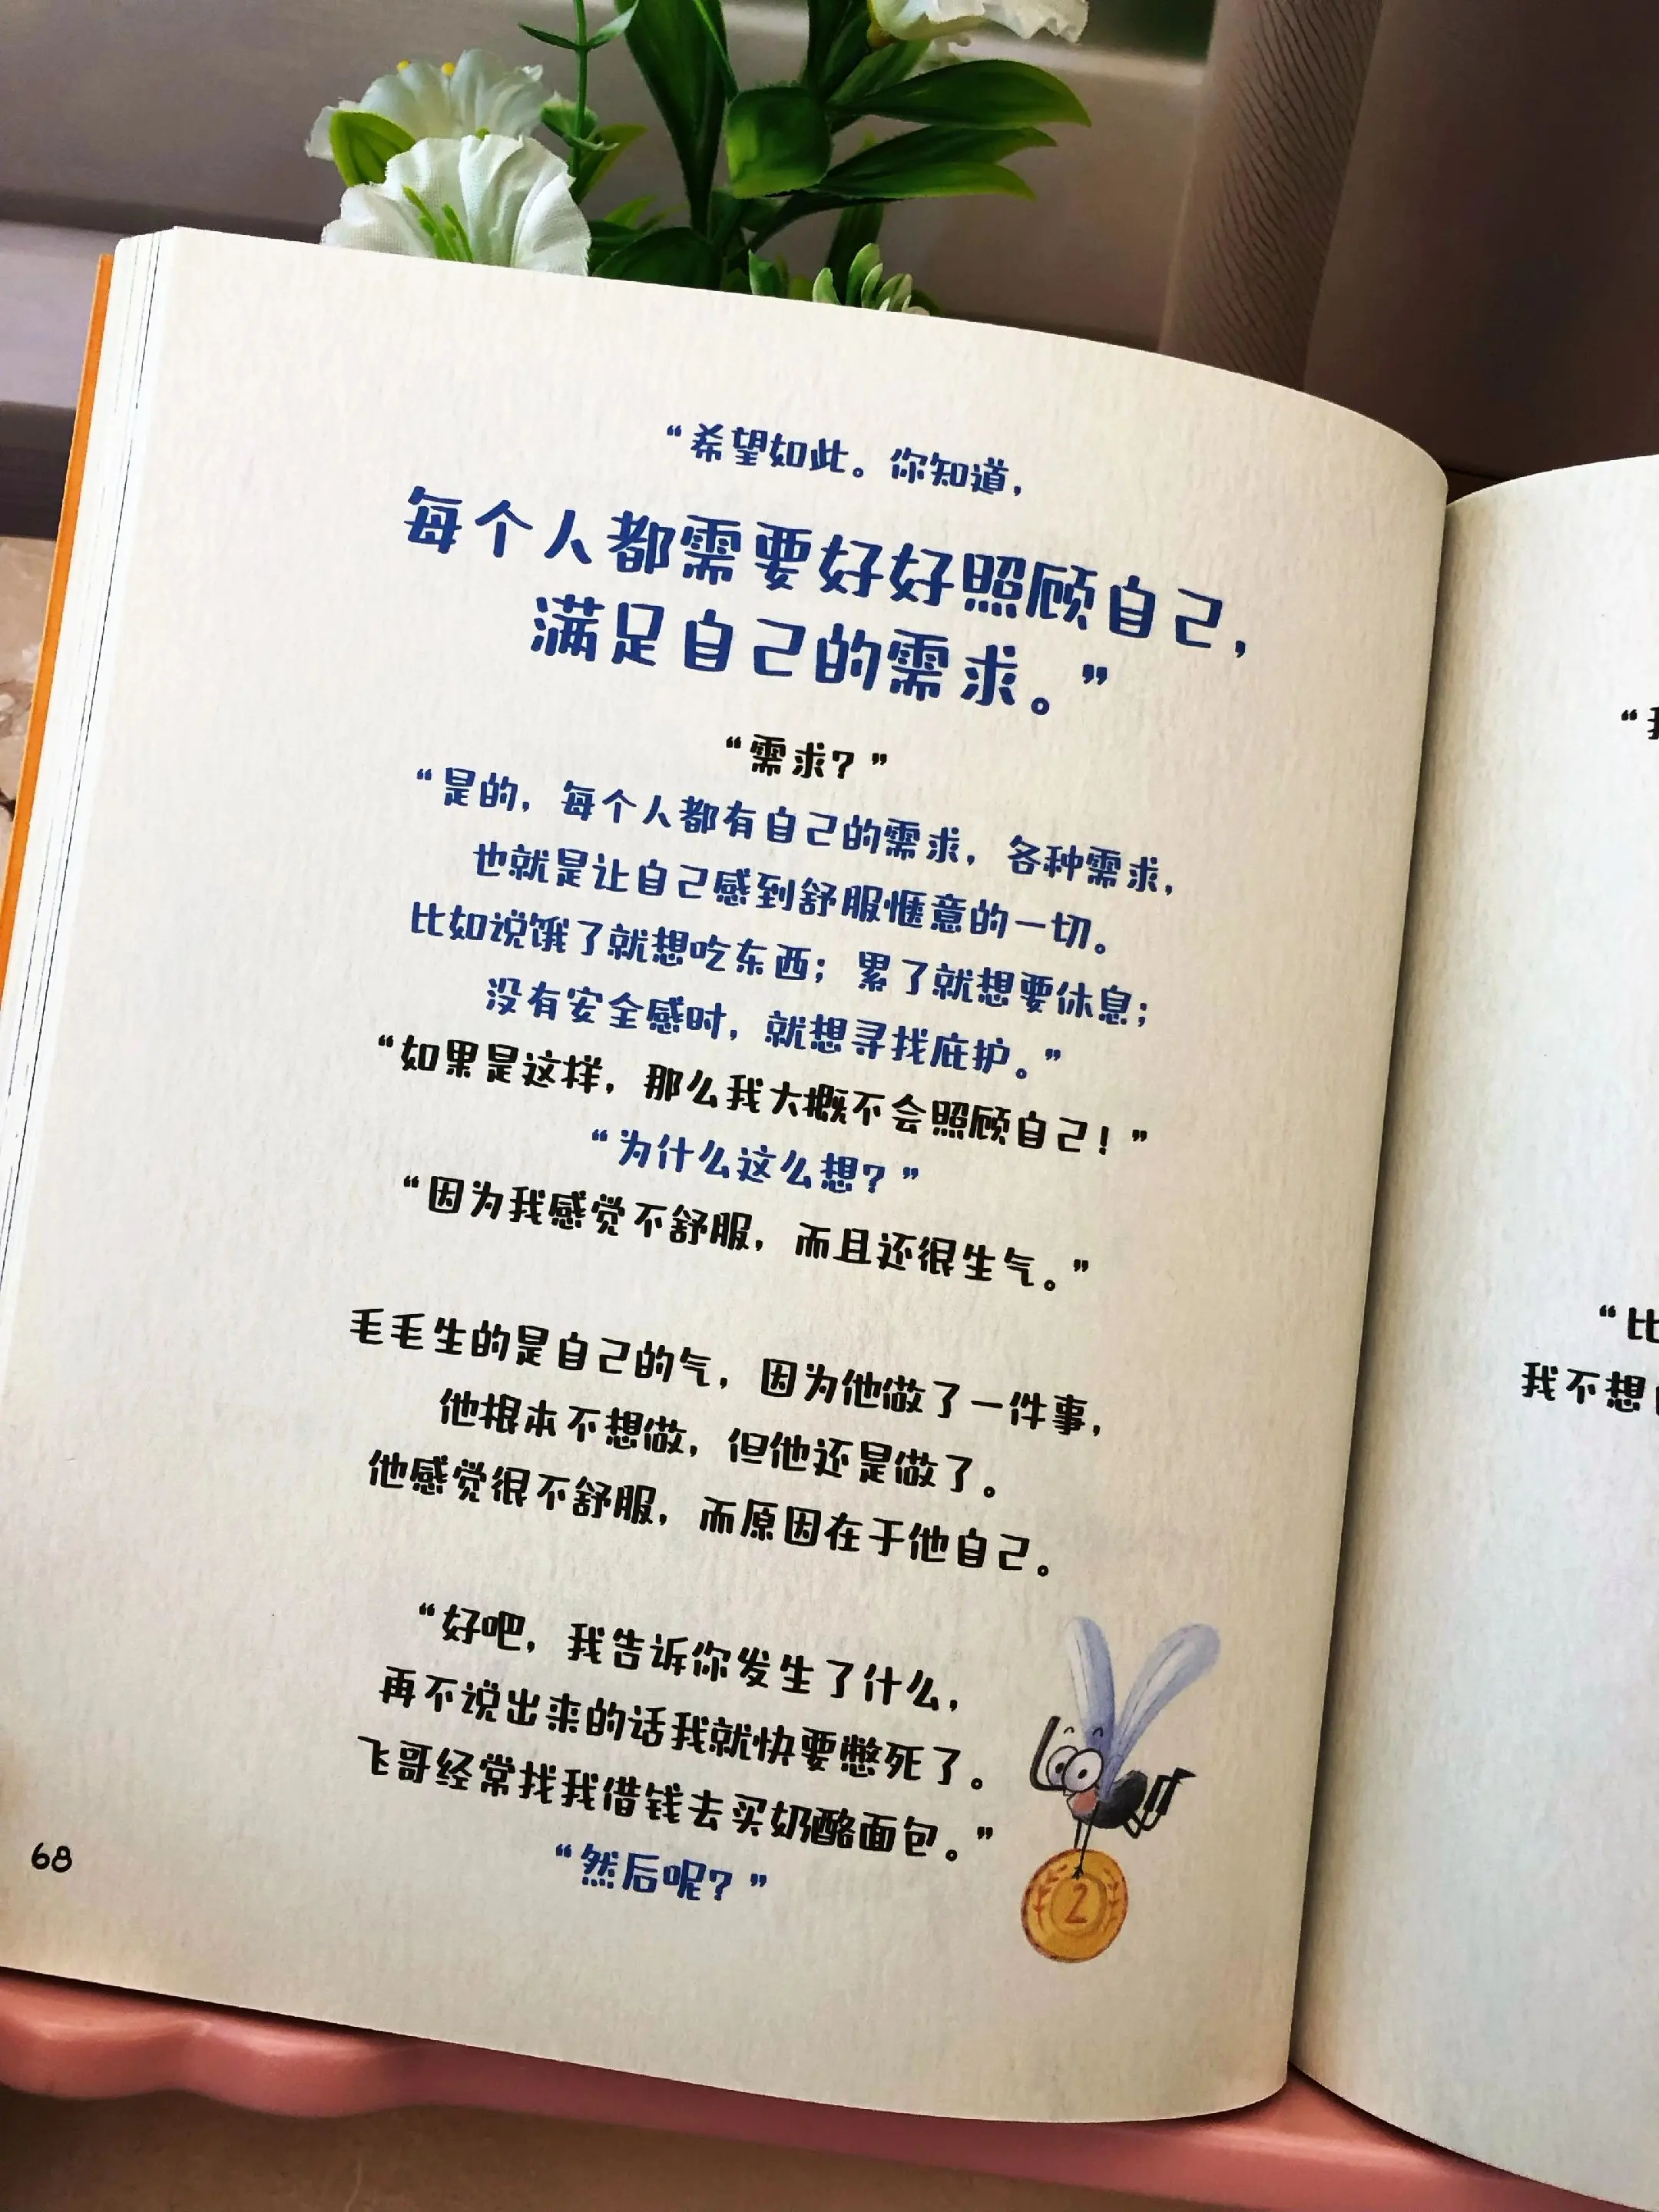 “希望如此。你知道，
每个人都需要好好照顾自己，
满足自己的需求。”
“需求？”
“是的，每个人都有自己的需求，各种需求，
也就是让自己感到舒服惬意的一切。
比如说饿了就想吃东西；累了就想要休息；
没有安全感时，就想寻找庇护。”
“如果是这样，那么我大概不会照顾自己！”
“为什么这么想？”
“因为我感觉不舒服，而且还很生气。”
毛毛生的是自己的气，因为他做了一件事，
他根本不想做，但他还是做了。
他感觉很不舒服，而原因在于他自己。
“好吧，我告诉你发生了什么，
再不说出来的话我就快要憋死了。
飞哥经常找我借钱去买奶酪面包。”
“然后呢？”
2
68
“比
我不想